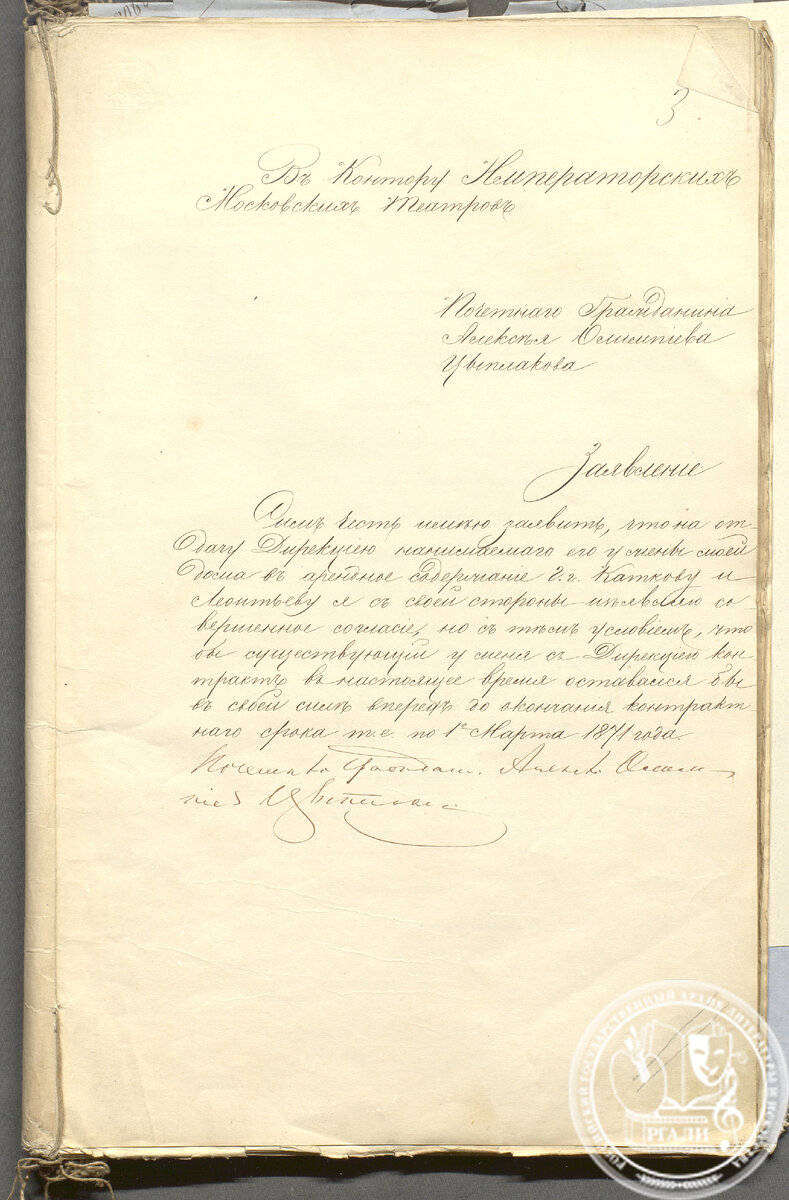 3
Въ Контору Императорскихъ
Московскихъ Театровъ
Почетнаго Гражданина
Алексѣя Олимпіева
Цыплакова
Заявленіе
Симъ честь имѣю заявить, что на от-
дачу Дирекціею нанимаемаго ею у меня моей
дома въ арендное содержаніе г.г. Каткову и
Леонтьеву я съ своей стороны изъявляю со
вершенное согласіе, но съ тѣмъ условіемъ, что
бы существующій у меня съ Дирекціею кон-
трактъ въ настоящее время оставался бы
въ своей силѣ впередъ до окончанія контракт
наго срока т.е. по 1е Марта 1871 года.
РОССИЙСКИЙ ГОСУДАРСТВЕННЫЙ АРХИВ ЛИТЕРАТУРЫ И ИСКУССТВА
РГАЛИ